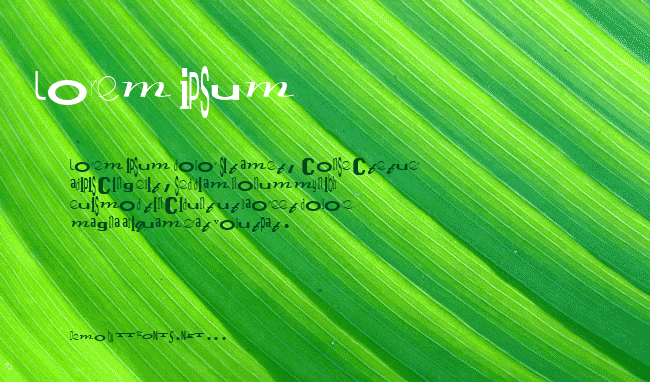 Lorem Ipsum
Lorem ipsum dolor sit amet, ConseCtetue
adipisCing elit, sed diam nonummy nib
euismod tinCidunt ut laoreet dolore
magna aliquam erat volutpat.